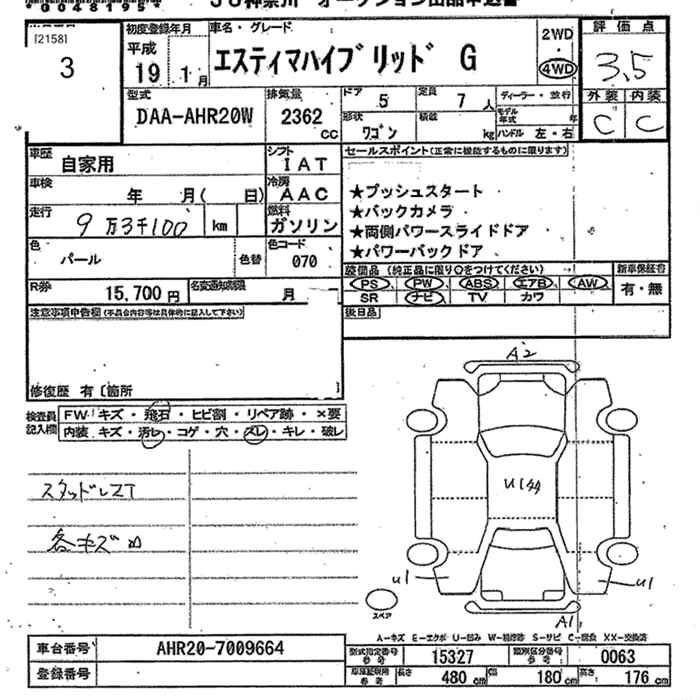 *00481951*
JU神奈川 オークション出品申込書
[2158]
3
初度登録年月
平成
19 1月
車名・グレード
エスティマハイブリッド G
2WD
・
4WD
評価点
3.5
外装 内装
C C
型式
DAA-AHR20W
排気量
2362
cc
ドア 5
定員 7人
ディーラー・並行
形状 ワゴン
積載 kg
モデル年式 年
ハンドル 左・右
車歴 自家用
シフト IAT
車検 年 月( 日)
冷房 AAC
走行 9万3千100 km
燃料 ガソリン
色 パール
色替
色コード 070
R券 15,700円
名変通知期限 月
セールスポイント(正常に機能するものに限ります)
★プッシュスタート
★バックカメラ
★両側パワースライドドア
★パワーバックドア
装備品(純正品に限り○をつけてください)
PS PW ABS エアB AW
SR ナビ TV カワ
新車保証書
有・無
後日品
注意事項申告欄(不具合内容等は具体的に記入して下さい)
修復歴 有〔箇所
検査員
記入欄
FW キズ・飛石・ヒビ割・リペア跡・×要
内装 キズ・汚レ・コゲ・穴・スレ・キレ・破レ
スタッドレスT
各キズ凹
A2
U1
U1
U1
A1
スペア
A-キズ E-エクボ U-凹み W-補修跡 S-サビ C-腐食 XX-交換済
車台番号 AHR20-7009664
登録番号
型式指定番号
参考
15327
類別区分番号
参考
0063
車庫証明用
参考
長さ 480cm
幅 180cm
高さ 176cm